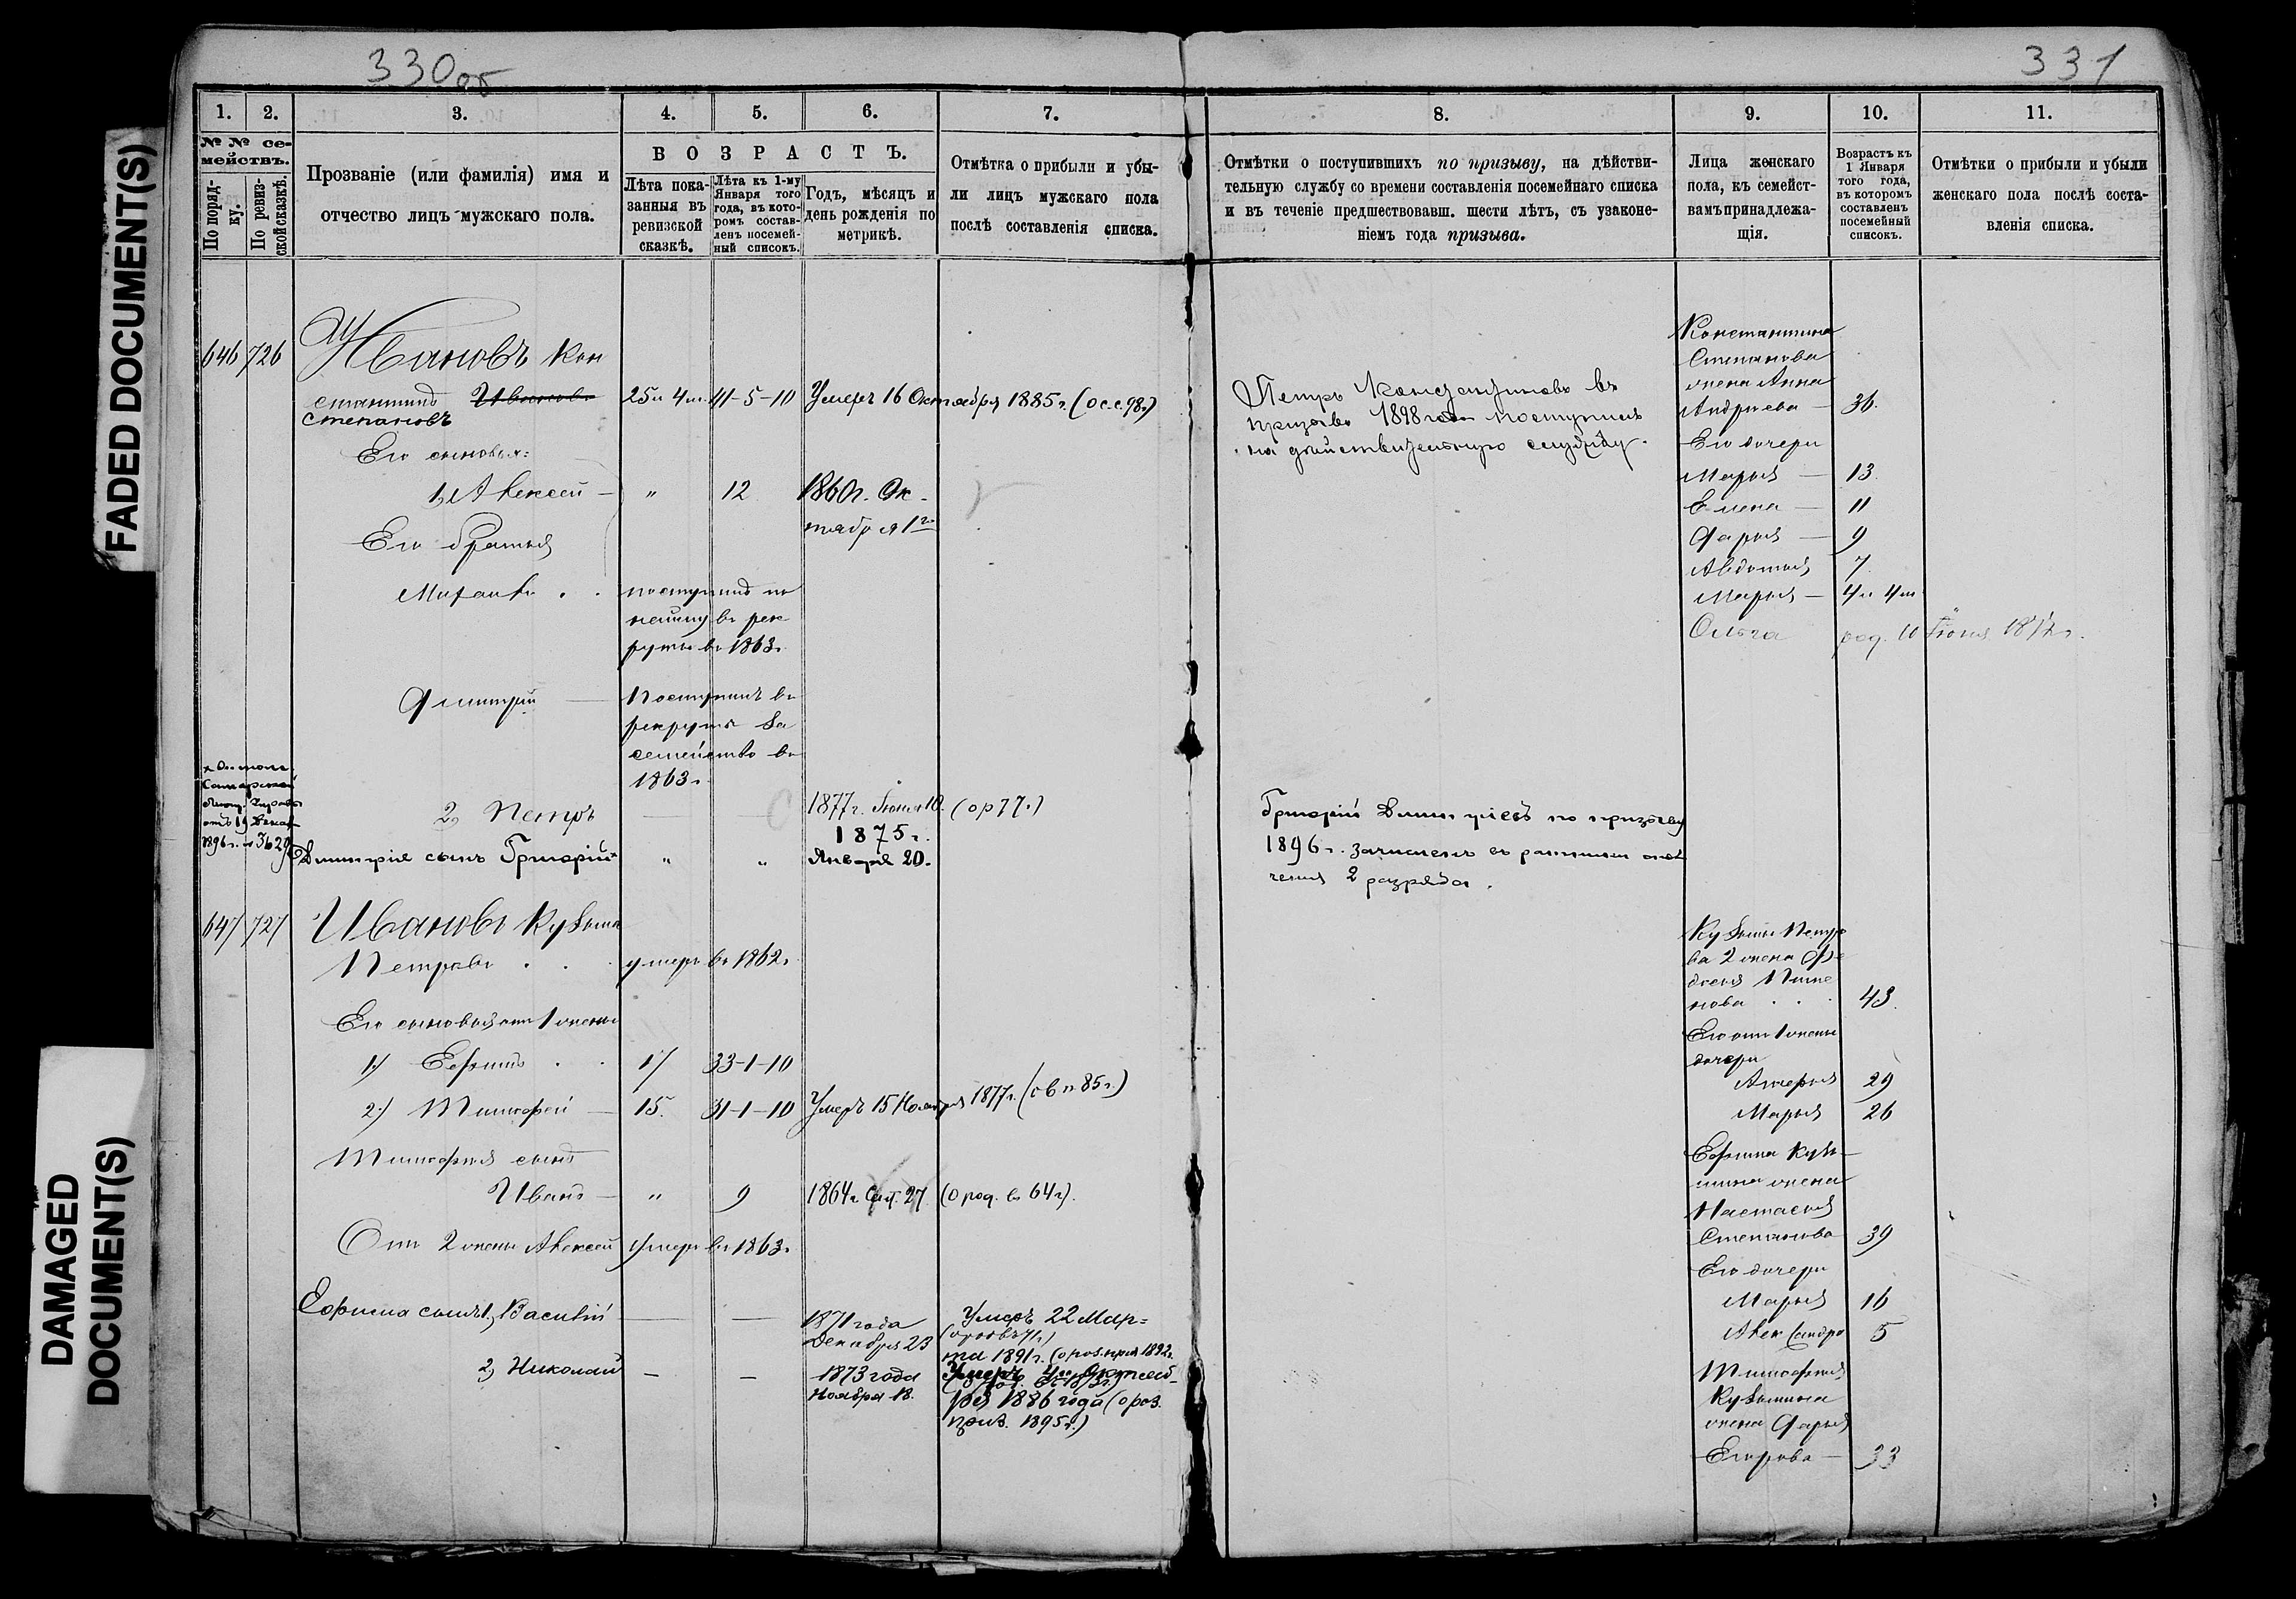 330 об
331
FADED DOCUMENT(S)
DAMAGED
DOCUMENT(S)
1. 2. 3. 4. 5. 6. 7.
№ № се-
мействъ.
По поряд-
ку.
По ревиз-
ской сказкѣ.
Прозваніе (или фамилія) имя и
отчество лицъ мужскаго пола.
ВОЗРАСТЪ.
Лѣта пока-
занныя въ
ревизской
сказкѣ.
Лѣта къ 1-му
Января того
года, въ кото-
ромъ состав-
ленъ посемей-
ный списокъ.
Годъ, мѣсяцъ и
день рожденія по
метрикѣ.
Отмѣтка о прибыли и убы-
ли лицъ мужскаго пола
послѣ составленія списка.
646 726 Ивановъ Кон
стантинъ Ивановъ 25 и 4 м. 41-5-10 Умеръ 16 Октября 1885 г. (о с.с. 98 г)
Степановъ
Его сыновья:
1, Алексѣй — " 12 1860 г. Ок-
тября 1го
Его братья
Михаилъ . . поступилъ по
найму въ рек
руты въ 1863 г.
Дмитрій — Поступилъ въ
рекруты за
семейство въ
1863 г.
2, Петръ — — 1877 г. Іюня 10. (о р 77 г.)
1875 г.
Дмитрія сынъ Григорій × " " Января 20.
отъ 19 Декаб
1896 г. № 3629
647 727 Ивановъ Кузьма
Петровъ . . . умеръ въ 1862 г.
Его сыновья отъ 1 жены
1) Ефимъ . . 17 33-1-10
2) Тимофей — 15. 31-1-10 Умеръ 15 Ноября 1877 г. (о в п 85 г.)
Тимофея сынъ
Иванъ — " 9 1864 г. Сент. 27 (о род. въ 64 г).
Отъ 2 жены Алексѣй умеръ въ 1863 г.
Ефима сынъ 1, Василій — — 1871 года Умеръ 22 Мар=
Декабря 23
та 1891 г. (о роз. приз 1892 г.
2, Николай — — 1873 года
Ноября 18.
ря 1886 года (о роз.
приз. 1895 г.)
8. 9. 10. 11.
Отмѣтки о поступившихъ по призыву, на дѣйстви-
тельную службу со времени составленія посемейнаго списка
и въ теченіе предшествовавш. шести лѣтъ, съ узаконе-
ніемъ года призыва.
Лица женскаго
пола, къ семейст-
вамъ принадлежа-
щія.
Возрастъ къ
1 Января
того года,
въ которомъ
составленъ
посемейный
списокъ.
Отмѣтки о прибыли и убыли
женскаго пола послѣ соста-
вленія списка.
Петръ Константиновъ въ
призывъ 1898 года поступилъ
на дѣйствительную службу.
Григорій Дмитріевъ по призыву
1896 г. зачисленъ въ ратники опол
ченія 2 разряда.
Константина
Степанова
жена Анна
Андреева — 36.
Его дочери
Марья — 13.
Елена — 11
Дарья — 9
Авдотья 7
Марья — 4 и 4 м
Ольга род. 10 Іюня 187 г.
Кузьмы Петро
ва 2 жена Фе
досья Пиме
нова . . . 43.
Его отъ 1 жены
дочери
29
Марья 26
Ефима Кузь-
мина жена
Настасья
Степанова 39
Его дочери
Марья 16
Александра 5
Тимофея
Кузьмина
жена Дарья
Егорова — 33